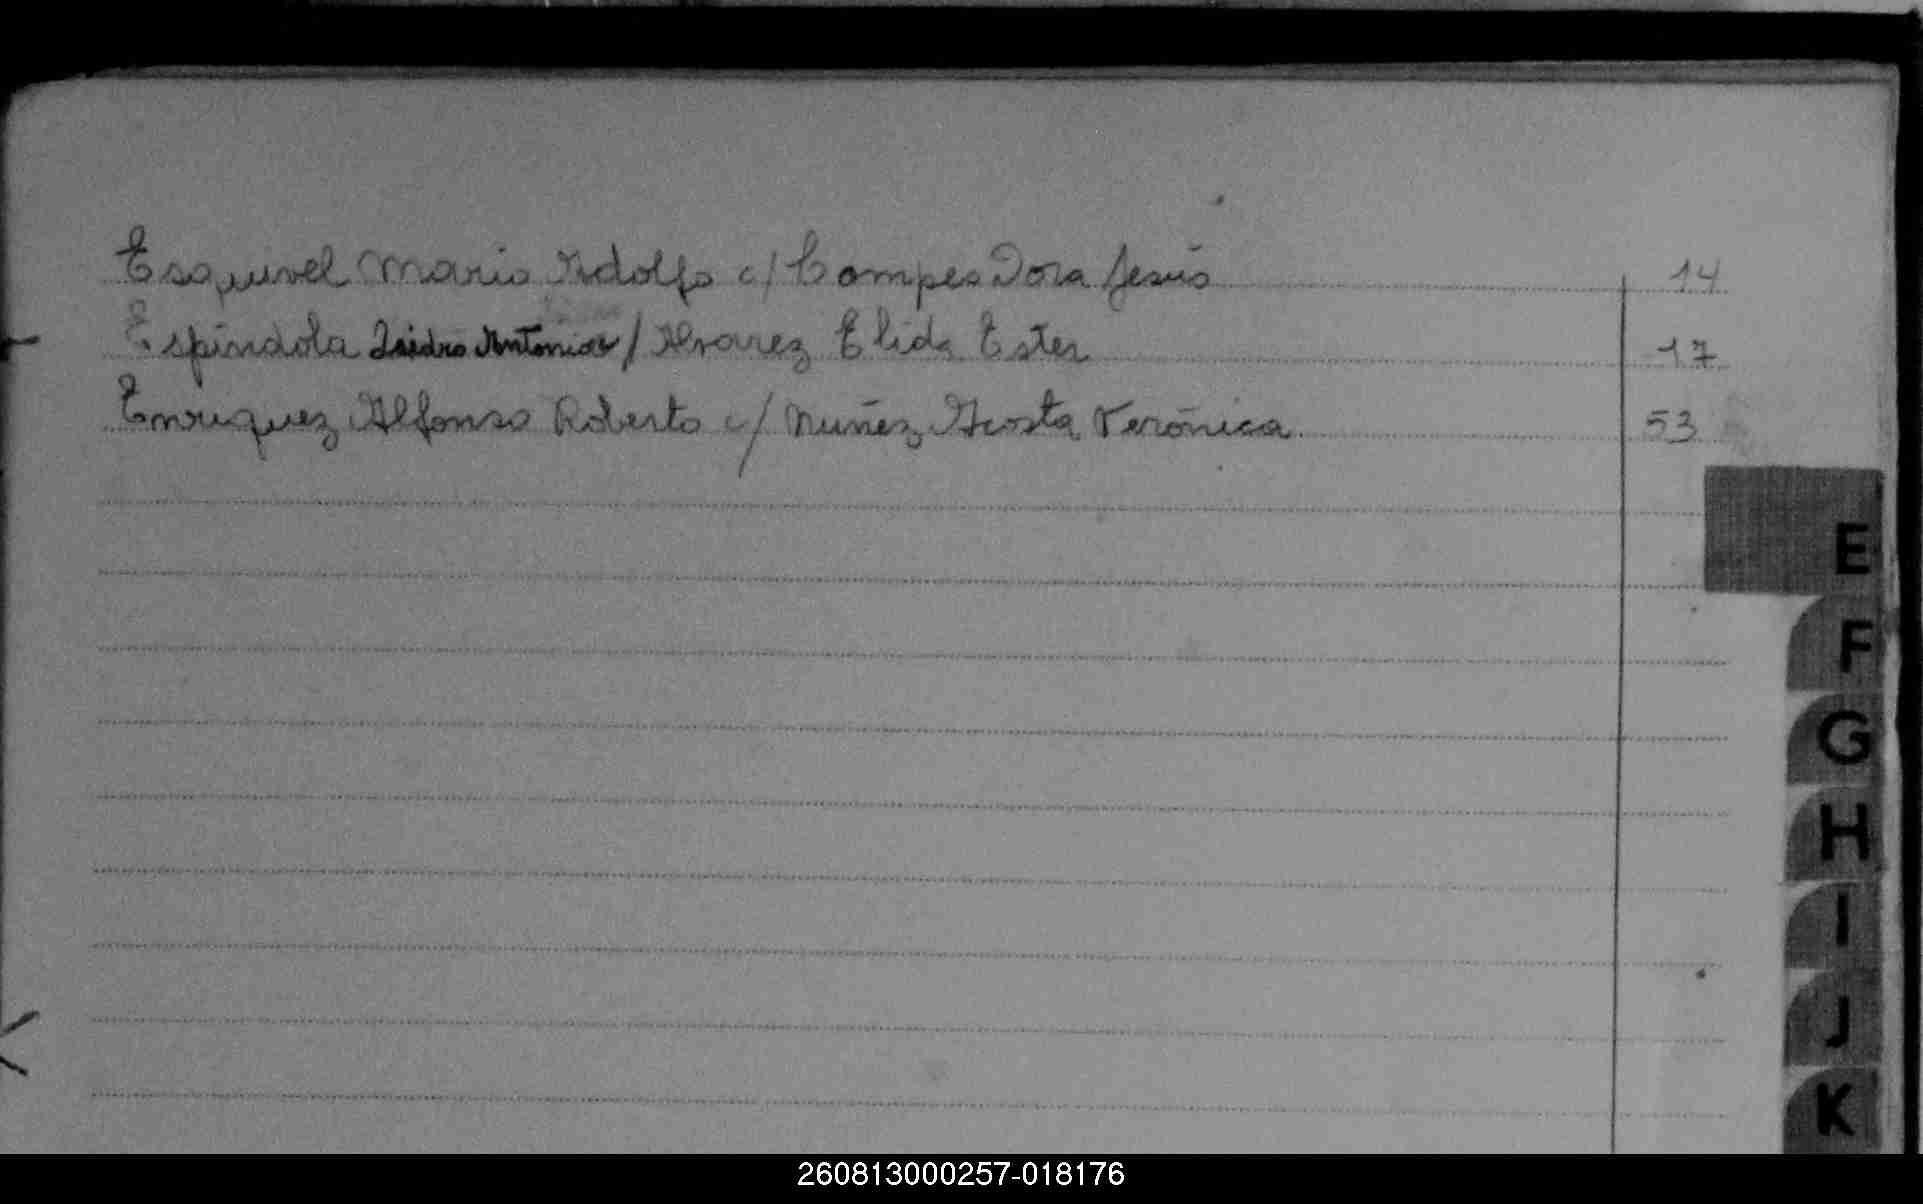 Esquivel Mario Adolfo c/ Compes Dora Jesús 14
Espíndola Isidro Antonio c/ Alvarez Elida Ester 17
Enriquez Alfonso Roberto c/ Nuñez Acosta Verónica 53
E
F
G
H
I
J
K
260813000257-018176